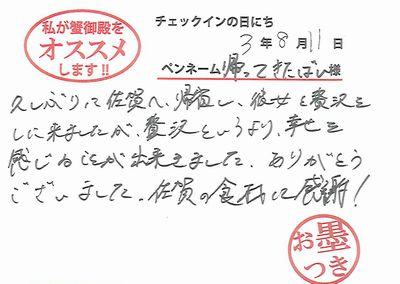 私が蟹御殿を
オススメ
します!!
チェックインの日にち
3年8月11日
ペンネーム 帰ってきたばい様
久しぶりに佐賀へ、帰省し、彼女と贅沢を
しに来ましたが、贅沢というより、幸せを
感じることが出来ました。ありがとう
ございました。佐賀の食材に感謝!
お墨
つき